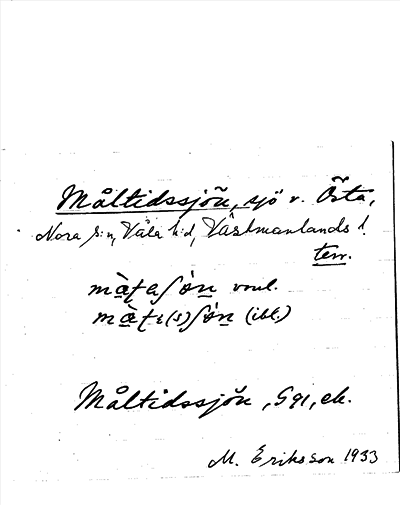 Måltidssjön, sjö v. Östa,
Nora s:n, Våla h:d, Västmanlands l.
terr.
vanl.
(ibl.)
Måltidssjön, G91, ek.
M. Eriksson 1933